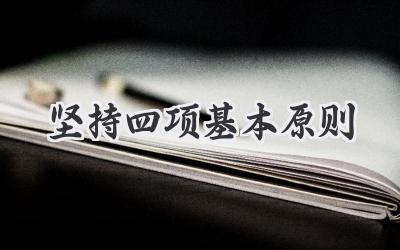 坚持四项基本原则